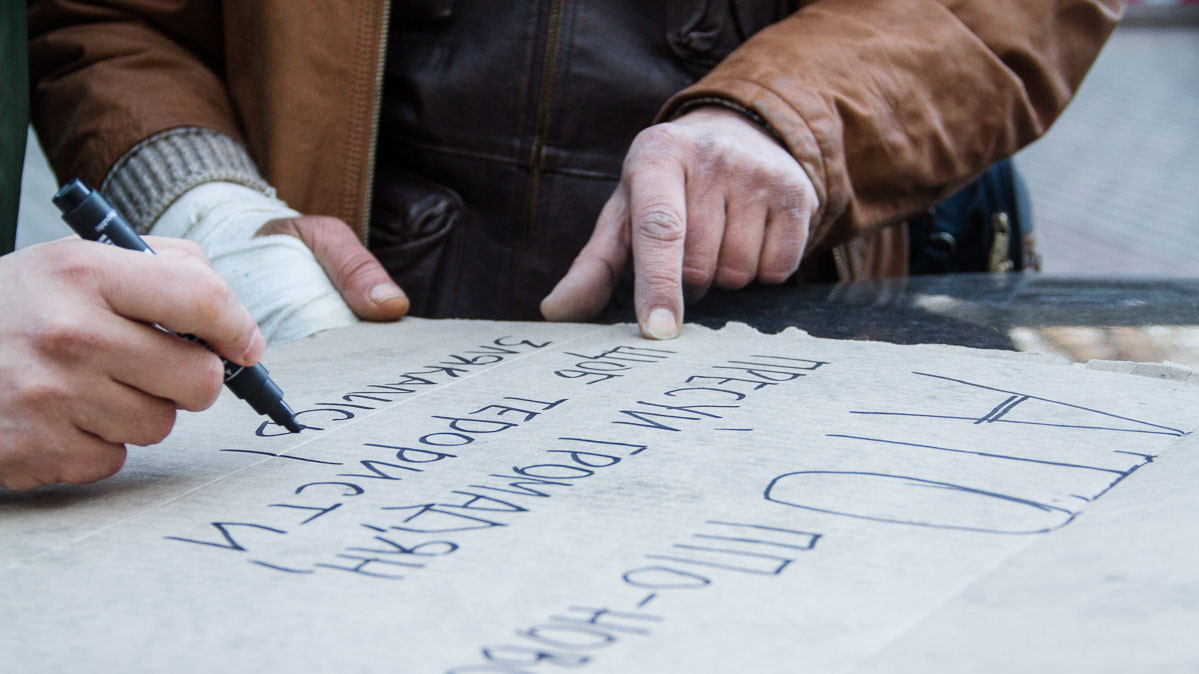 АТО ПО-НОВ
ПРЕСУЙ ГРОМАДЯН,
ЩОБ ТЕРОРИСТИ,
ЗЛЯКАЛИСЯ